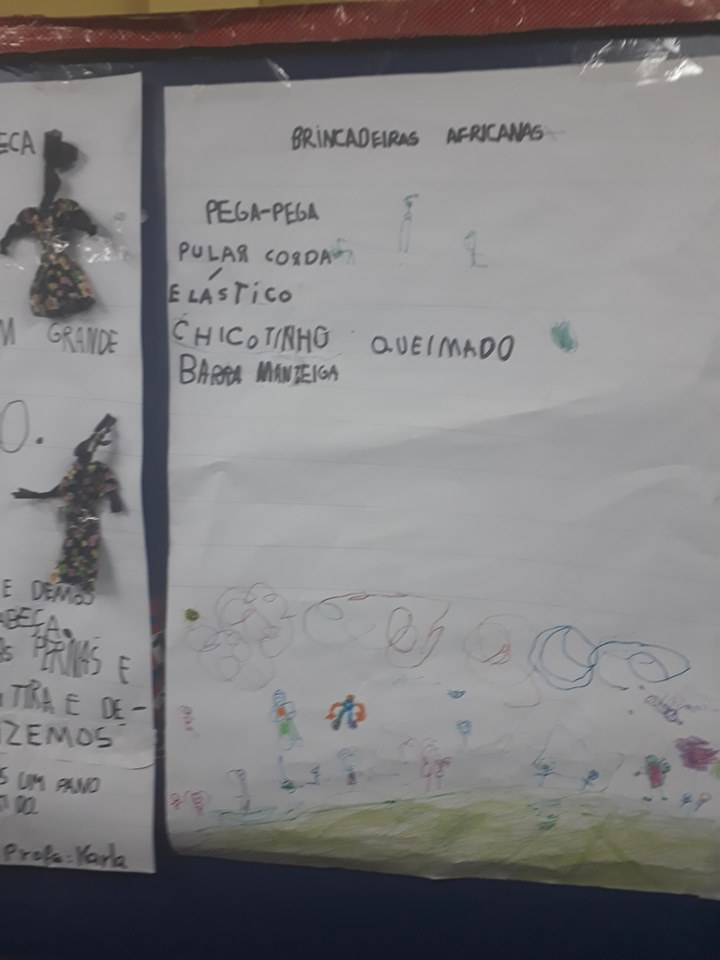 ECA
M GRANDE
O.
E DEMOS
ABEÇA.
AS PERNAS E
TIRA E DE-
IZEMOS
S UM PANO
Profa: Karla
BRINCADEIRAS AFRICANAS
PEGA-PEGA
PULAR CORDA
ELÁSTICO
CHICOTINHO QUEIMADO
BARRA MANTEIGA